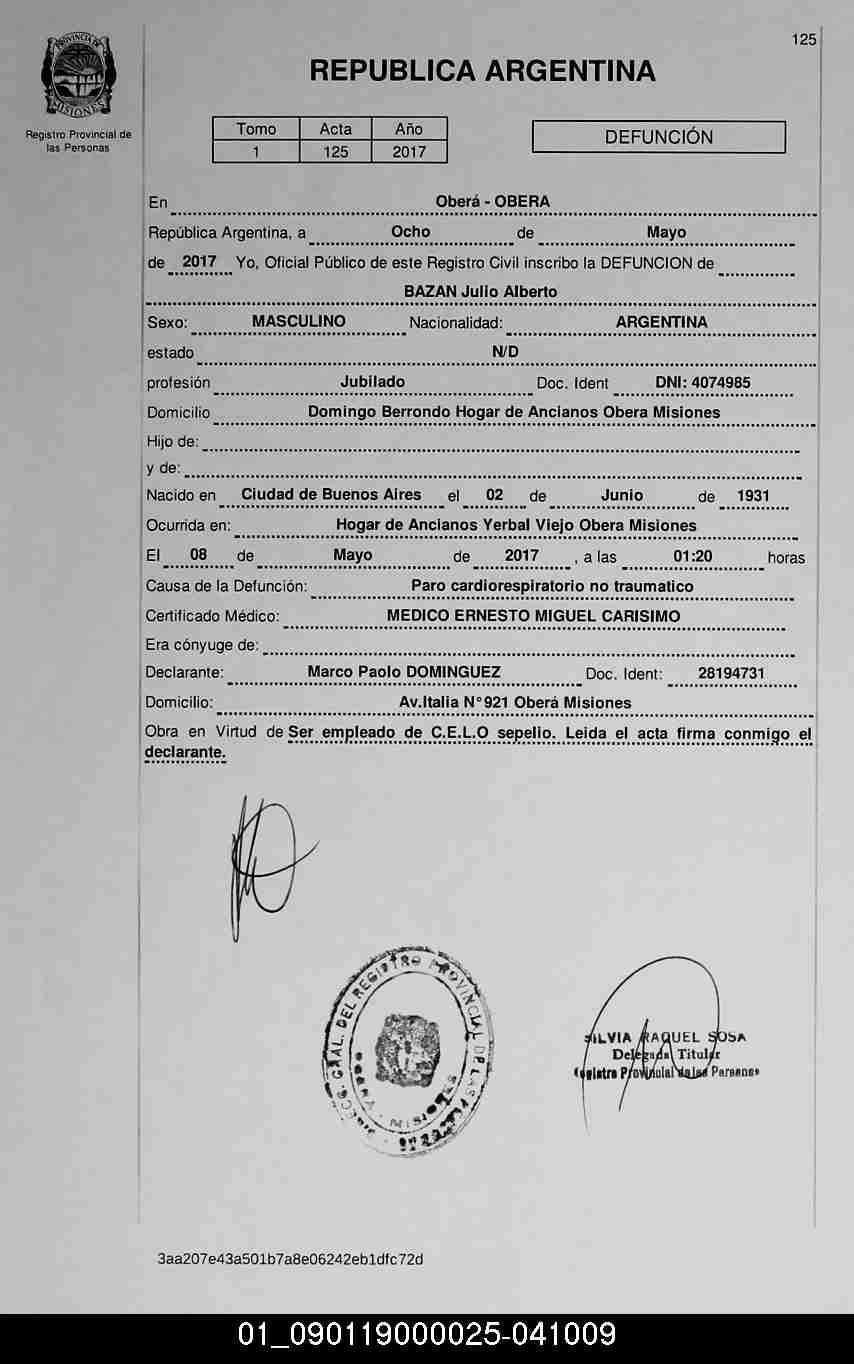 125
PROVINCIA DE
MISIONES
Registro Provincial de
las Personas
REPUBLICA ARGENTINA
Tomo Acta Año
1 125 2017
DEFUNCIÓN
En Oberá - OBERA
República Argentina, a Ocho de Mayo
de 2017 Yo, Oficial Público de este Registro Civil inscribo la DEFUNCION de
BAZAN Julio Alberto
Sexo: MASCULINO Nacionalidad: ARGENTINA
estado N/D
profesión Jubilado Doc. Ident DNI: 4074985
Domicilio Domingo Berrondo Hogar de Ancianos Obera Misiones
Hijo de:
y de:
Nacido en Ciudad de Buenos Aires el 02 de Junio de 1931
Ocurrida en: Hogar de Ancianos Yerbal Viejo Obera Misiones
El 08 de Mayo de 2017 , a las 01:20 horas
Causa de la Defunción: Paro cardiorespiratorio no traumatico
Certificado Médico: MEDICO ERNESTO MIGUEL CARISIMO
Era cónyuge de:
Declarante: Marco Paolo DOMINGUEZ Doc. Ident: 28194731
Domicilio: Av.Italia N°921 Oberá Misiones
Obra en Virtud de Ser empleado de C.E.L.O sepelio. Leida el acta firma conmigo el
declarante.
GRAL. DEL REGISTRO PROVINCIAL DE LAS
MISIONES
SILVIA RAQUEL SOSA
Delegada Titular
Registro Provincial de las Personas
3aa207e43a501b7a8e06242eb1dfc72d
01_090119000025-041009